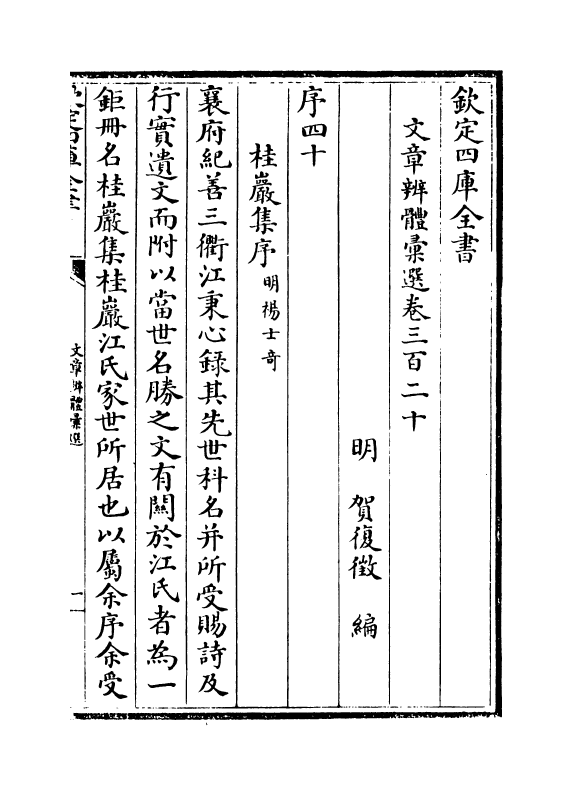 欽定四庫全書
文章辨體彚選卷三百二十
明 賀復徵 編
序四十
桂巖集序 明楊士奇
襄府紀善三衢江秉心錄其先世科名并所受賜詩及
行實遺文而附以當世名勝之文有關於江氏者為一
鉅冊名桂巖集桂巖江氏家世所居也以屬余序余受
文章辨體彚選
一